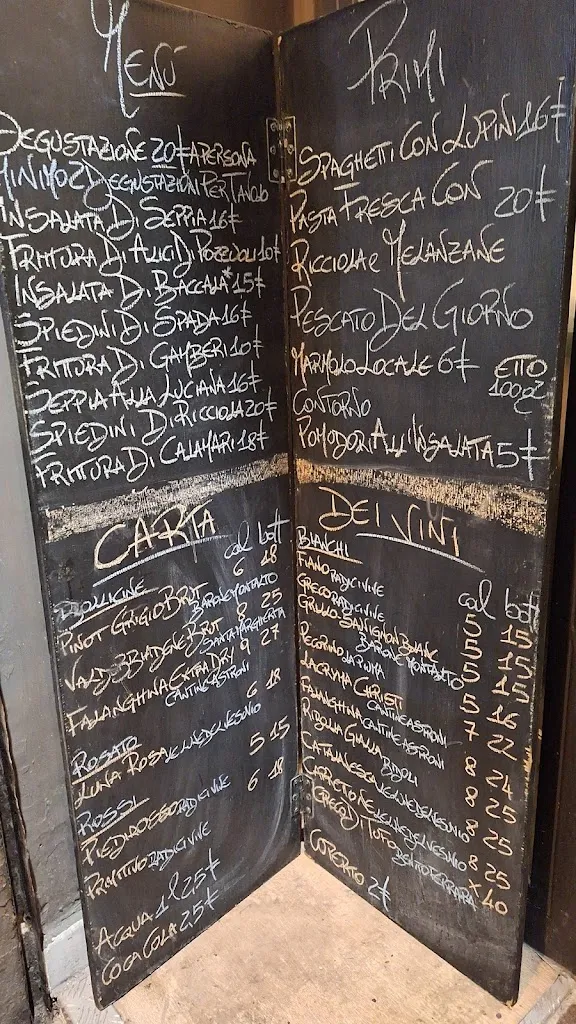 Menù
DEGUSTAZIONE 20€ A PERSONA
MINIMO 2 DEGUSTAZIONI PER TAVOLO
INSALATA DI SEPPIA 16€
FRITTURA DI ALICI DI POZZUOLI 10€
INSALATA DI BACCALA* 15€
SPIEDINI DI SPADA 16€
FRITTURA DI GAMBERI 10€
SEPPIA ALLA LUCIANA 16€
SPIEDINI DI RICCIOLA 20€
FRITTURA DI CALAMARI 18€
PRIMI
SPAGHETTI CON LUPINI 16€
PASTA FRESCA CON 20€
RICCIOLA e MELANZANE
PESCATO DEL GIORNO
MARMOLO LOCALE 6€ ETTO
100gr
CONTORNO
POMODORI ALL'INSALATA 5€
CARTA
cal bott
BOLLICINE 6 18
PINOT GRIGIO BRUT BARONE MONTALTO 8 25
VALDOBBIADENE BRUT SANTA MARGHERITA 9 27
FALANGHINA EXTRA DRY CANTINE ASTRONI 6 18
ROSATO
LUNA ROSA VELUE DEL VESUVIO 5 15
ROSSI 6 18
PIEDIROSSO RADICI VIVE
PRIMITIVO RADICI VIVE
ACQUA 1l 2,5€
COCA COLA 2,5€
DEI VINI
BIANCHI cal bott
FIANO RADICI VIVE 5 15
GRECO RADICI VIVE 5 15
GRILLO SAUVIGNON BLANC BARONE MONTALTO 5 15
PECORINO 5 16
LACRYMA CHRISTI CANTINE ASTRONI 7 22
FALANGHINA CANTINE ASTRONI 8 24
RIBOLLA GIALLA BIDOLI 8 25
CATALANESCA 8 25
8 25
GRECO DI TUFO BENITO FERRARA X 40
COPERTO 2€